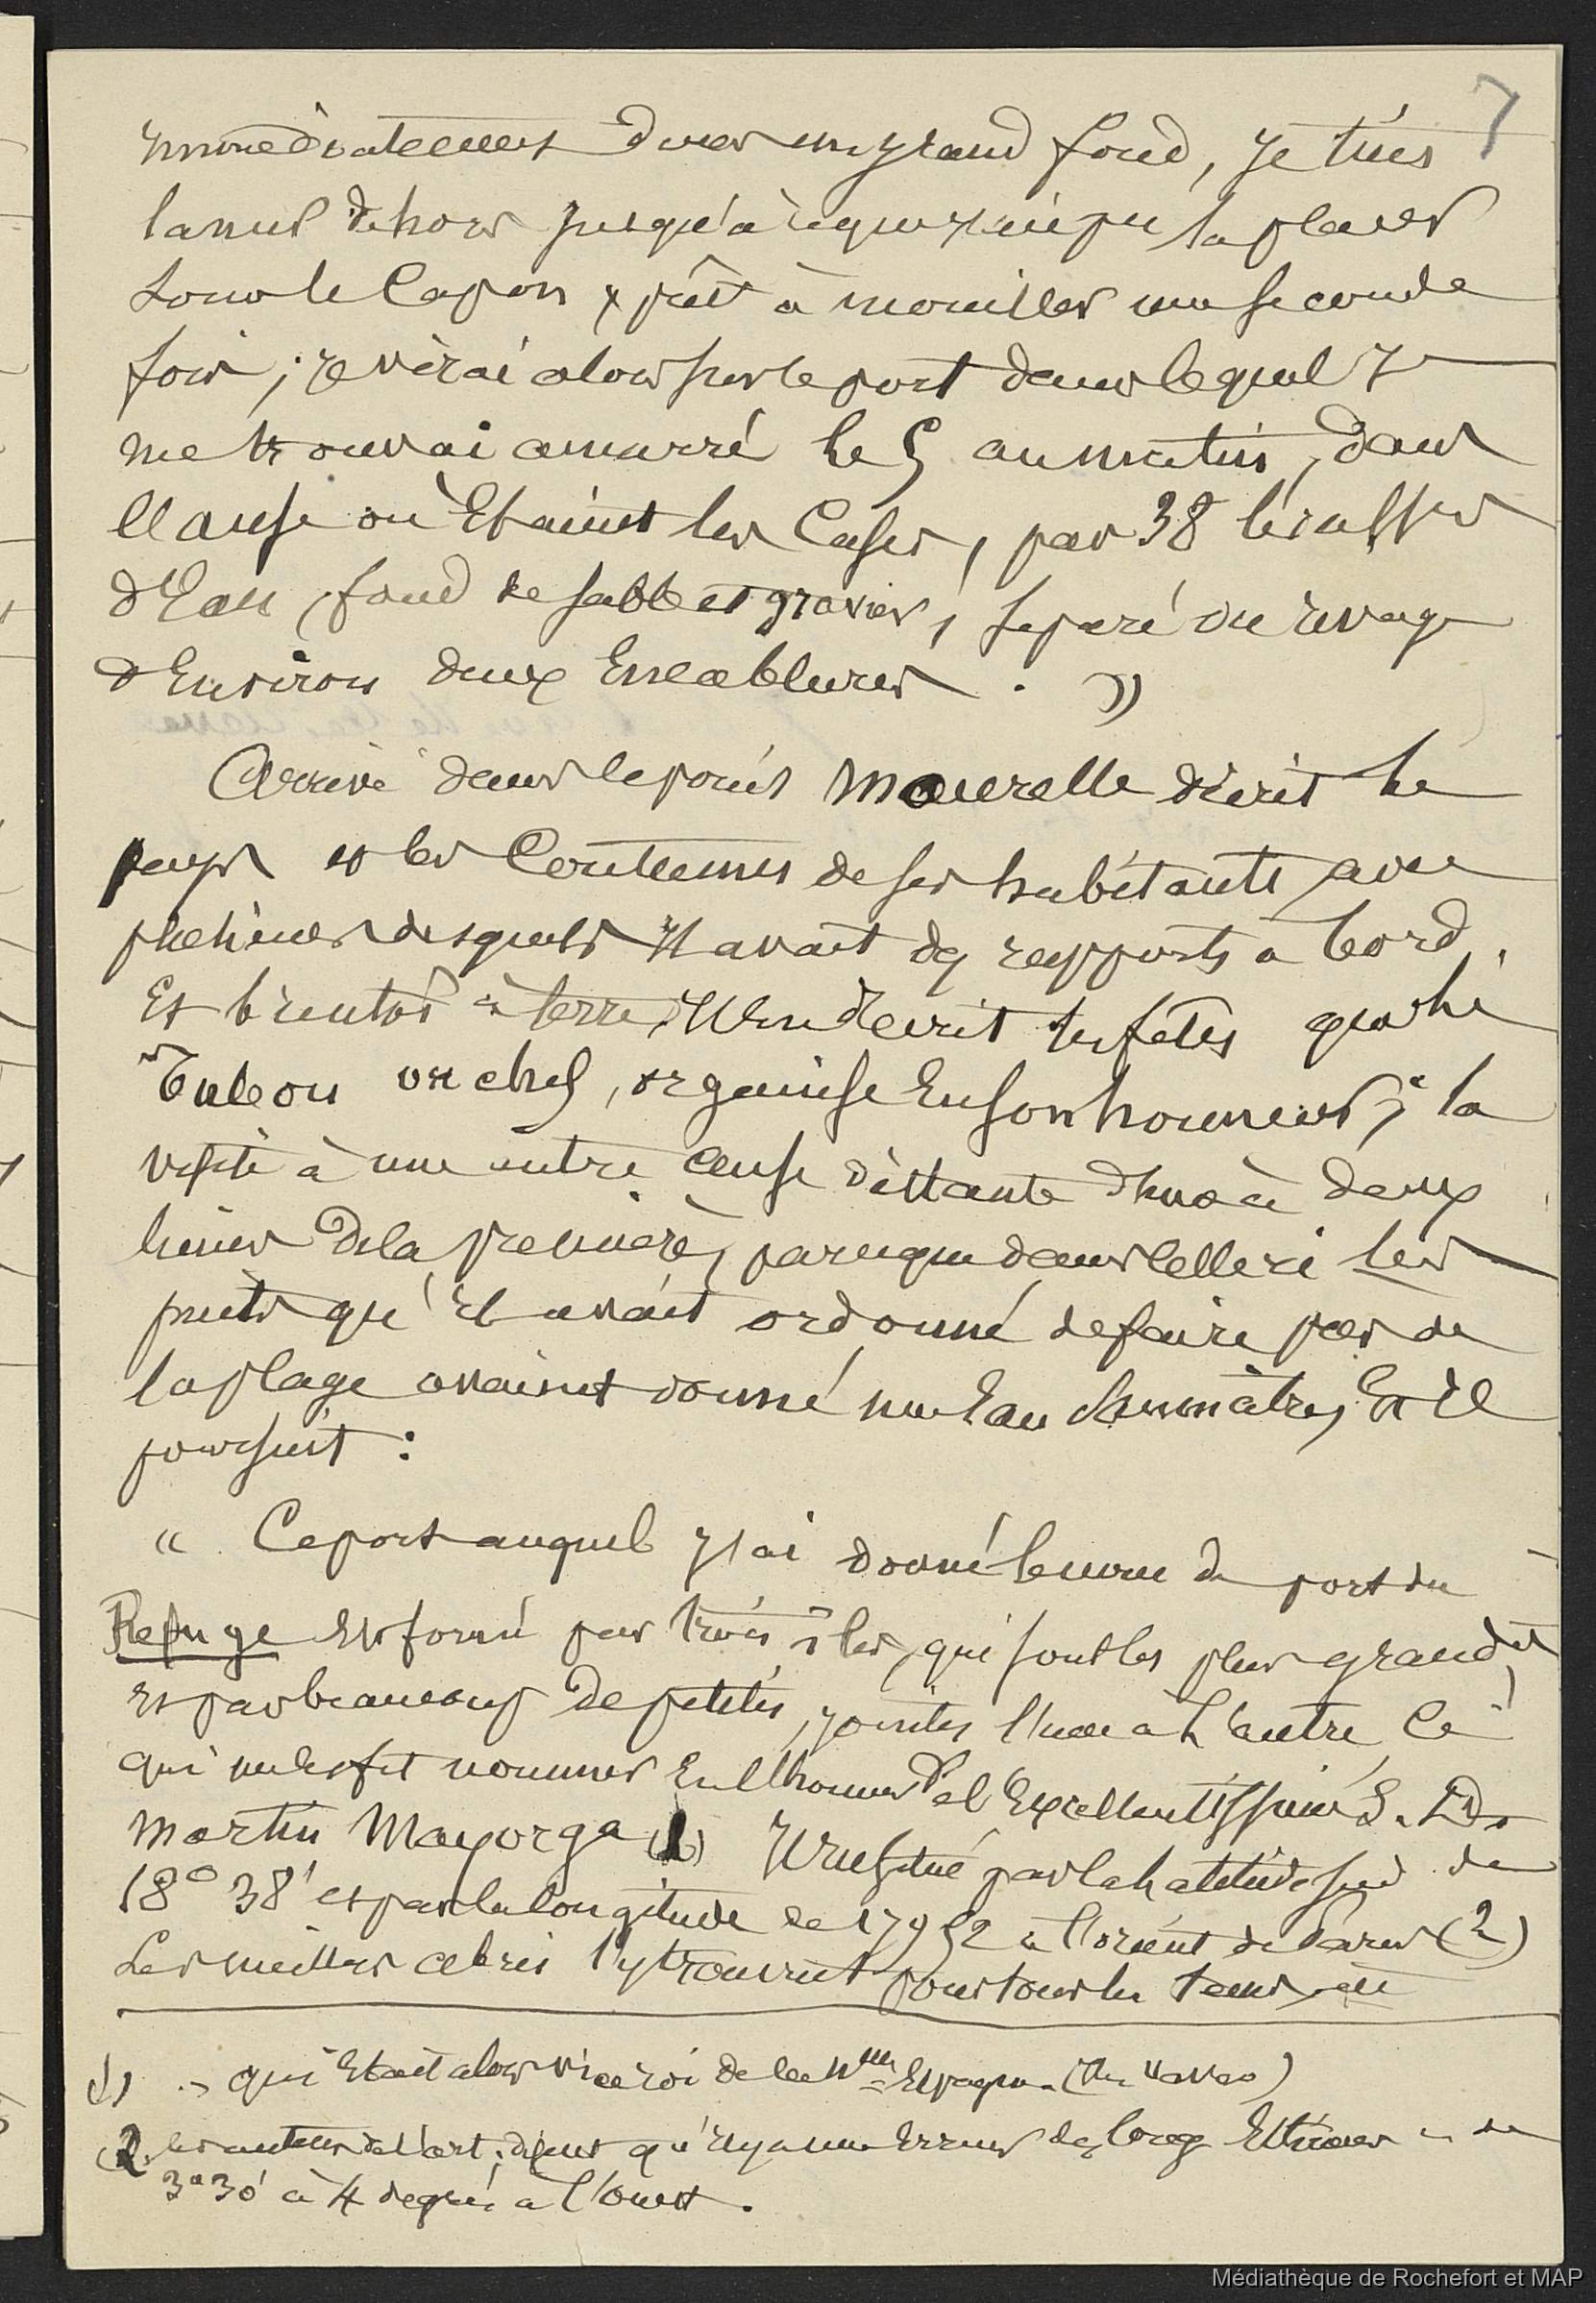 7
immédiatement dans un grand fond, je tins
la nuit dehors jusqu'à ce que j'ai pu la placer
sous le Capon & prêt à mouiller une seconde
fois ; je virai alors sur le port dans lequel je
me trouvai amarré le 5 au matin, dans
l'anse où Etaient les Cases, par 38 brasses
d'Eau, fond de sable et gravier, séparé du rivage
d'Environ deux Encablures. »
Arrivé dans le port Maurelle décrit le
pays et les Coutumes de ses habitants avec
plusieurs desquels il avait des rapports à bord,
Et bientôt à terre, Il en décrit les fêtes que le
Tubou ou chef, organise En son honneur ; la
visite à une autre anse distante d'une à deux
lieues de la première, parce que dans celle ci les
puits qu'il avait ordonné de faire près de
la plage avaient donné une Eau saumâtre, Et il
poursuit :
« Ce port auquel j'ai donné le nom de port du
Refuge Est formé par trois îles, qui sont les plus grandes,
Et par beaucoup de petites, jointes l'une à l'autre, Ce
qui me les fit nommer En l'honneur de l'Excellentissime S. D.
Martin Mayorga (1) Il est situé par la latitude sud de
18° 38' et par la longitude de 179 52 à l'orient de Paris (2)
Les meilleurs abris s'y trouvent pour tous les tems,
(1) qui Etait alors Vice roi de la Nlle Espagne
(2) les auteurs de l'art. disent qu'il y a une Erreur de long. Estimée de
3° 30' à 4 degrés à l'Ouest.
Médiathèque de Rochefort et MAP